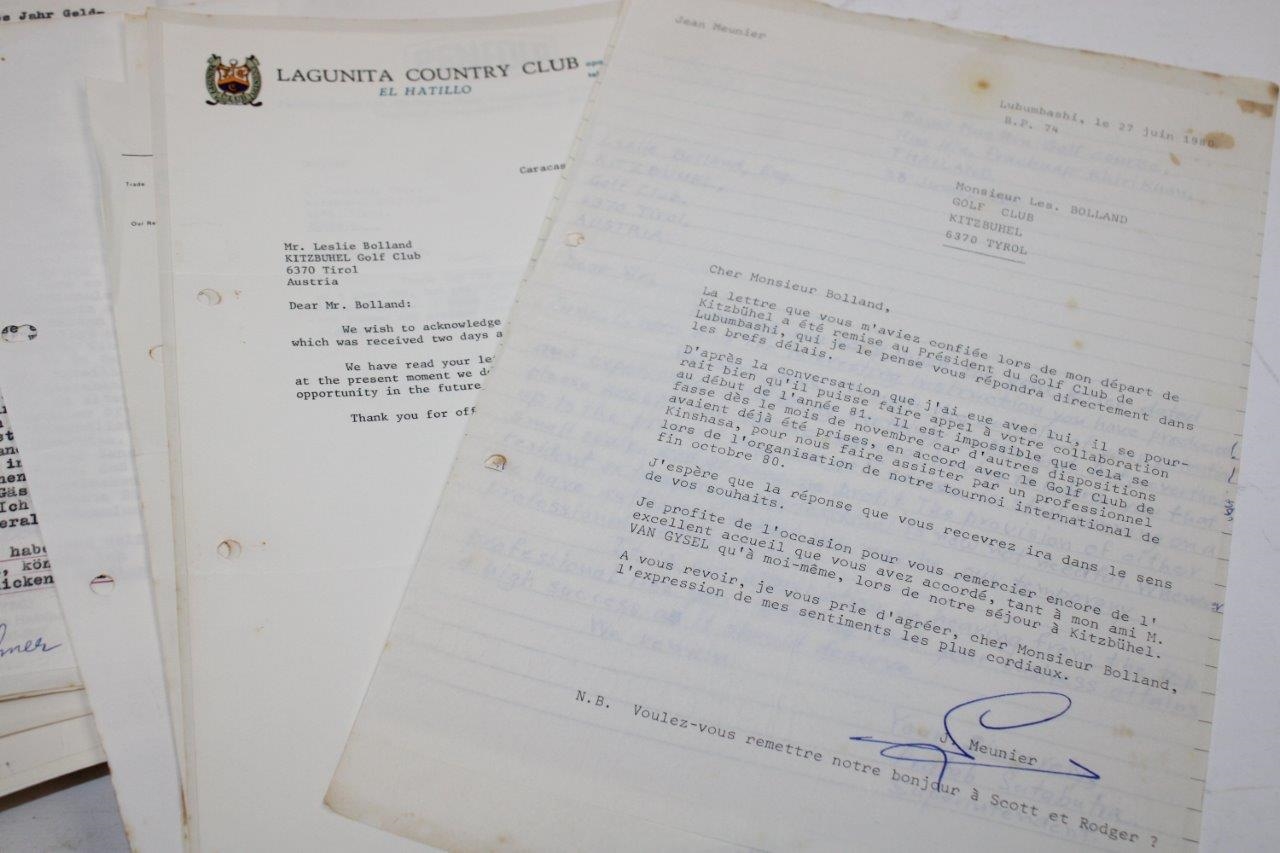 s Jahr Geld-
Trade
LAGUNITA COUNTRY CLUB
EL HATILLO
Caracas
Mr. Leslie Bolland
KITZBUHEL Golf Club
6370 Tirol
Austria
Dear Mr. Bolland:
We wish to acknowledge
which was received two days a
We have read your le
at the present moment we d
opportunity in the future
Thank you for off
Ich
eral
habe
kön
icken
Jean Meunier
Lubumbashi, le 27 juin 1980
B.P. 74
Monsieur Les. BOLLAND
GOLF CLUB
KITZBUHEL
6370 TYROL
Cher Monsieur Bolland,
La lettre que vous m'aviez confiée lors de mon départ de
Kitzbühel a été remise au Président du Golf Club de
Lubumbashi, qui je le pense vous répondra directement dans
les brefs délais.
D'après la conversation que j'ai eue avec lui, il se pour-
rait bien qu'il puisse faire appel à votre collaboration
au début de l'année 81. Il est impossible que cela se
fasse dès le mois de novembre car d'autres dispositions
avaient déjà été prises, en accord avec le Golf Club de
Kinshasa, pour nous faire assister par un professionnel
lors de l'organisation de notre tournoi international de
fin octobre 80.
J'espère que la réponse que vous recevrez ira dans le sens
de vos souhaits.
Je profite de l'occasion pour vous remercier encore de l'
excellent accueil que vous avez accordé, tant à mon ami M.
VAN GYSEL qu'à moi-même, lors de notre séjour à Kitzbühel.
A vous revoir, je vous prie d'agréer, cher Monsieur Bolland,
l'expression de mes sentiments les plus cordiaux.
J. Meunier
N.B. Voulez-vous remettre notre bonjour à Scott et Rodger ?